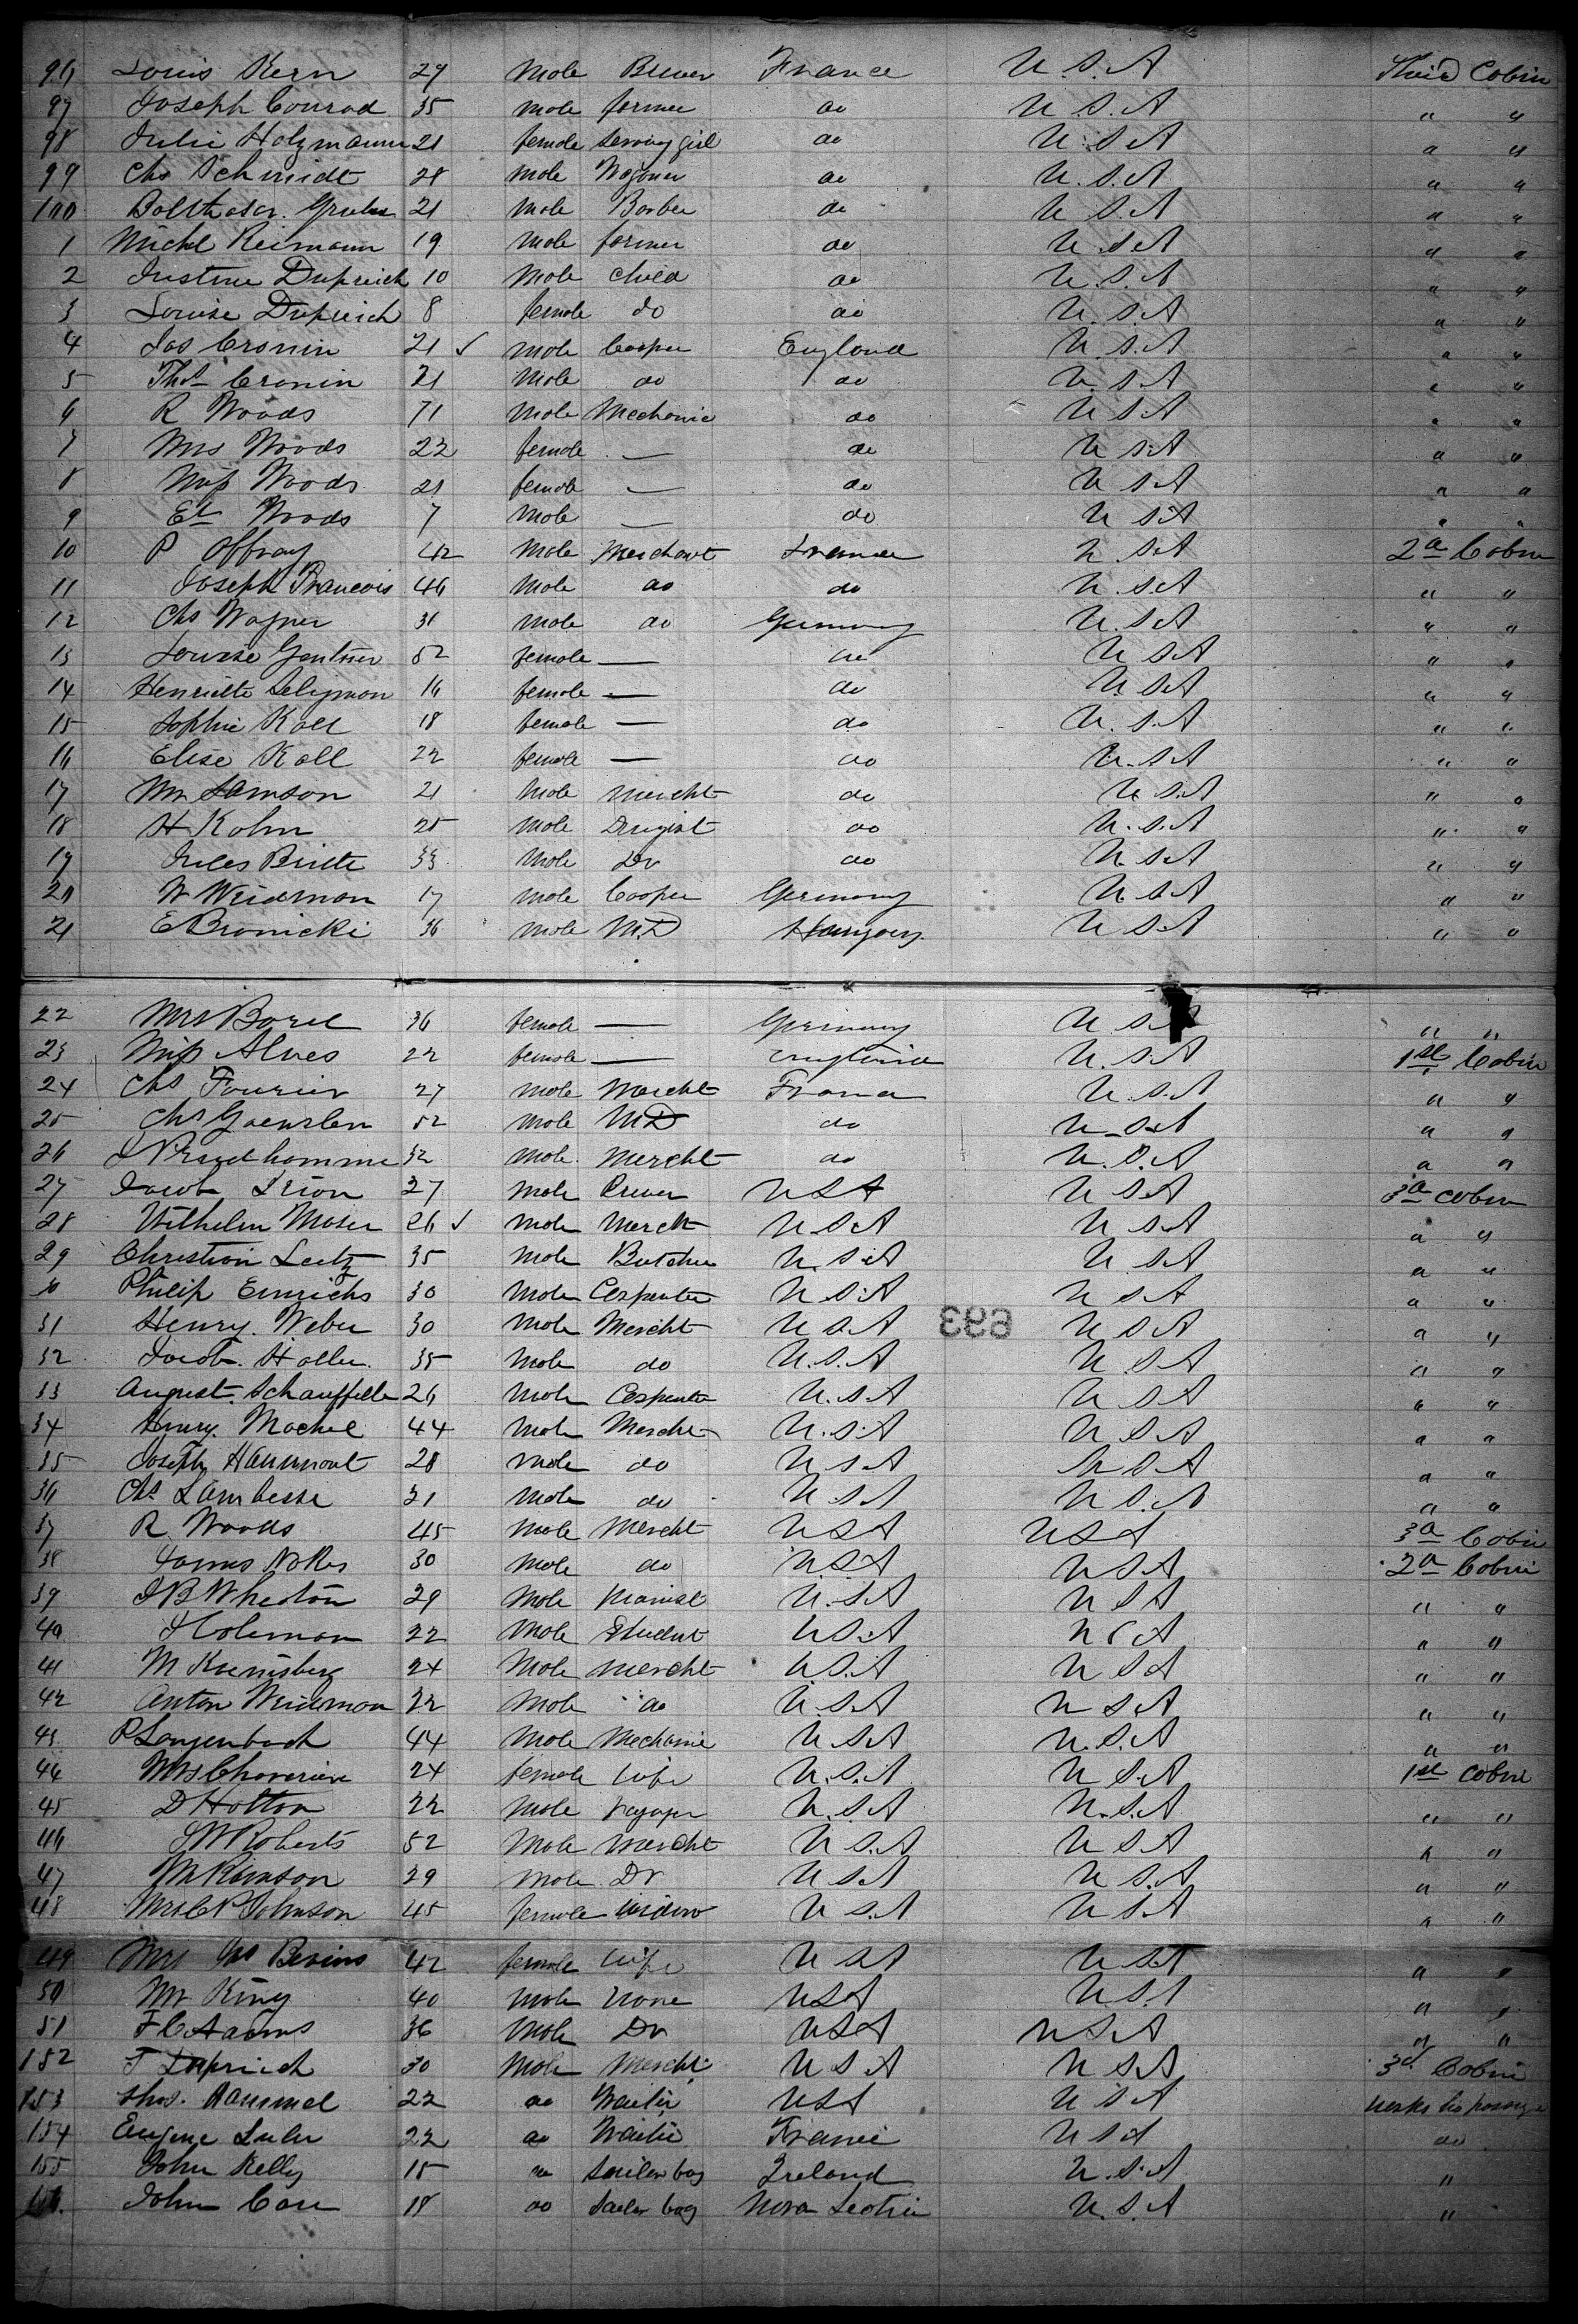 96 Louis Kern 29 male Brewer France U.S.A Third Cabin
97 Joseph Conrad 35 male farmer do U.S.A " "
98 Julie Holzmann 21 female serving girl do U.S.A " "
99 Chs Schmidt 28 male Wagoner do U.S.A " "
100 Balthasar Gruber 21 male Barber do U.S.A " "
1 Michl Reimann 19 male farmer do U.S.A " "
2 Justine Dupreich 10 male child do U.S.A " "
3 Louise Dupreich 8 female do do U.S.A " "
4 Jas Cronin 21 ✓ male Cooper England U.S.A " "
5 Ths Cronin 21 male do do U.S.A " "
6 R Woods 71 male Mechanic do U S A " "
7 Mrs Woods 22 female — do U S.A " "
8 Miss Woods 21 female — do U S.A " "
9 Ed Woods 7 male — do U S.A " "
10 P Offray 42 male Merchant France U S.A 2d Cabin
11 Joseph Francois 46 male do do U.S.A " "
12 Chs Wagner 31 male do Germany U.S.A " "
13 Louise Gentner 52 female — do U S A " "
14 Henriette Seligman 16 female — do U.S.A " "
15 Sophie Kall 18 female — do U.S.A " "
16 Elise Kall 22 female — do U.S.A " "
17 Mr Samson 21 male mercht do U S.A " "
18 H Kohn 25 male Drugist do U.S.A " "
19 Jules Britte 33 male Dr do U S A " "
20 W Weidman 17 male Cooper Germany U.S.A " "
21 E Bronicki 36 male M.D Hungary U S A " "
22 Mrs Borel 36 female — Germany U S A " "
23 Miss Alves 22 female — England U.S.A 1st Cabin
24 Chs Fourier 27 male Mercht France U.S.A " "
25 Chs Gaenslen 52 male MD do U.S.A " "
26 J Prudhomme 32 male mercht do U.S.A " "
27 Jacob Irion 27 male Brewer USA U S A 3d Cabin
28 Wilhelm Moser 26 ✓ male Mercht U S A U S A " "
29 Christian Lutz 35 male Butcher U.S.A U S A " "
30 Philip Emrichs 30 male Carpenter U S.A U S A " "
31 Henry Weber 30 male Mercht U S A U S A " "
693
32 Jacob Haller 35 male do U.S.A U S A " "
33 August Schauffelle 26 male Carpenter U.S.A U S A " "
34 Henry Machel 44 male Mercht U.S.A U S A " "
35 Joseph Hammont 28 male do U S A U S A " "
36 Chs Lambesse 31 male do U S A U S.A " "
37 R Woods 45 male mercht USA USA 3d Cabin
38 James Nokes 30 male do USA USA 2d Cabin
39 J B Wheaton 29 male U.S.A U S A " "
40 J Coleman 22 male Student U S.A U S A " "
41 M Koenisberg 24 male mercht U S.A U S A " "
42 Anton Weidman 22 male do U.S.A U S A " "
43 P Langenbach 44 male Mechanic U S.A U.S.A " "
44 Mrs Chaveriere 24 female wife U.S.A U S.A 1st Cabin
45 D Hatton 22 male U.S.A U.S.A " "
46 J W Roberts 52 male mercht U S.A U S A " "
47 M Ramson 29 male Dr U S A U S.A " "
48 Mrs C P Johnson 45 female widow U S.A U S.A " "
49 Mrs Jas Bevins 42 female wife U S A U S A " "
50 Mr King 40 male none USA U S A " "
51 F C Adams 36 male Dr USA U S A " "
152 J Dupreich 30 male Mercht U S A U S A 3d Cabin
153 Thos. Hammel 22 do Waiter USA U S A works his passage
154 Eugene Luler 22 do Waiter France U S A do
155 John Kelly 15 do Sailor boy Ireland U.S.A "
156. John Carr 18 do Sailor boy Nova Scotia U.S.A "